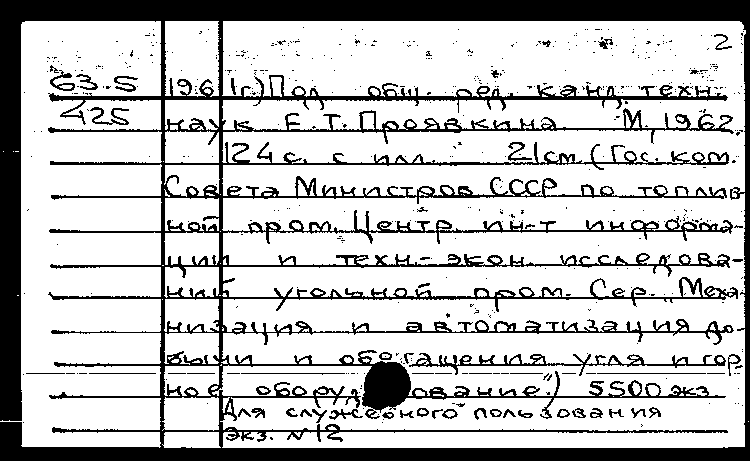 2
63.5 1961г.) Под общ. ред. канд. техн.
425 наук Е.Т. Проявкина М., 1962.
124 с. с илл. 21см (Гос. ком.
Совета Министров СССР по топлив-
ной пром. Центр. ин-т информа-
ции и техн.-экон. исследова-
ний угольной пром. Сер. „Меха-
низация и автоматизация до-
бычи и обогащения угля и гор-
ное оборудование") 5500 экз.
Для служебного пользования
экз. №12